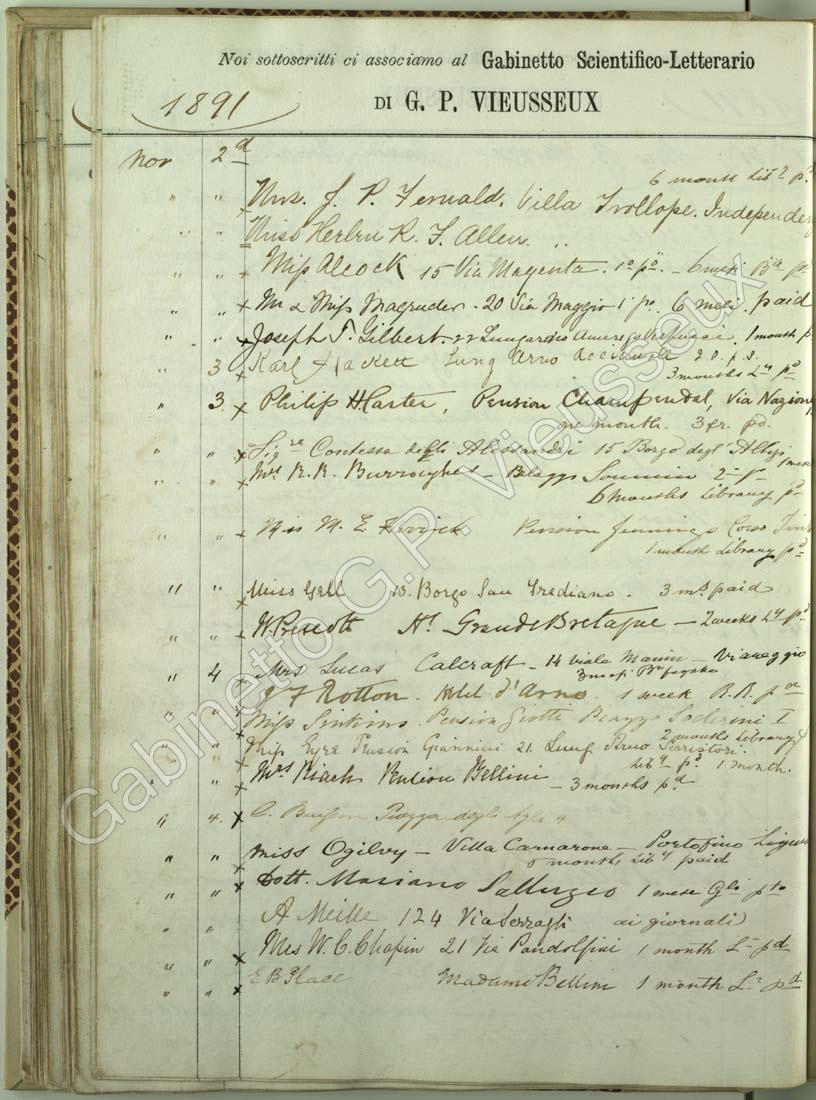 Noi sottoscritti ci associamo al Gabinetto Scientifico-Letterario
DI G. P. VIEUSSEUX
1891
Nov 2d
6 month Liby pd
" " x Mrs. J. P. Fernald. Villa Trollope. Independen
" " Miss R. F. Allen. "
" " x Miss Alcock 15 Via Magenta. 1o po - 6 mesi pd
" " x Mr & Miss Magruder - 20 Via Maggio 1o po 6 mesi. paid
" " x Joseph T. Gilbert - 22 Lungarno Amerigo Vespucci. 1 month p
3 x Karl Hackett Lung Arno Acciauoli 20. p. 3.
3 months Ly pd
" 3. x Philip H Carter, Pension Champendal, Via Nazion
one month. 3 fr. pd.
" " x Sigra Contessa degli Alessandri 15 Borgo degl' Albizi
1 mese
" " x Mrs R. R. Burroughes - 2 - p
6 Months Library pd
" " x Miss M. E. Pension Jennings Corso Tint
1 month Library pd
" " x Miss Gell 15. Borgo San Frediano. 3 ms paid
" " x W. Prescott Hl. Grande Bretagne - 2 weeks Ly pd
" 4 x Mrs Lucas Calcraft - 14 viale Manin - Viareggio
3 mesi
" " J F Rotton. Hotel d'Arno. 1 week R.R. pd
" " x Miss Pension Giotti Piazza Soderini I
2 months Library
" " x Miss Eyre Pension Giannini 21. Lung Arno Serristori.
Liby pd 1 month.
" " x Mrs Riach Pension Bellini - 3 months pd
" 4. x C. Piazza degli 4
" " x Miss Ogilvy - Villa Carnarvon - Portofino Ligur
months Liby paid
" " x Dott. Mariano 1 mese pto
A Meille 124 Via Serragli ai giornali
" " x Mrs W. C. Chapin 21 Via Pandolfini 1 month L- pd
" " x E B Place Madame Bellini 1 month L- pd
Gabinetto G.P. Vieusseux